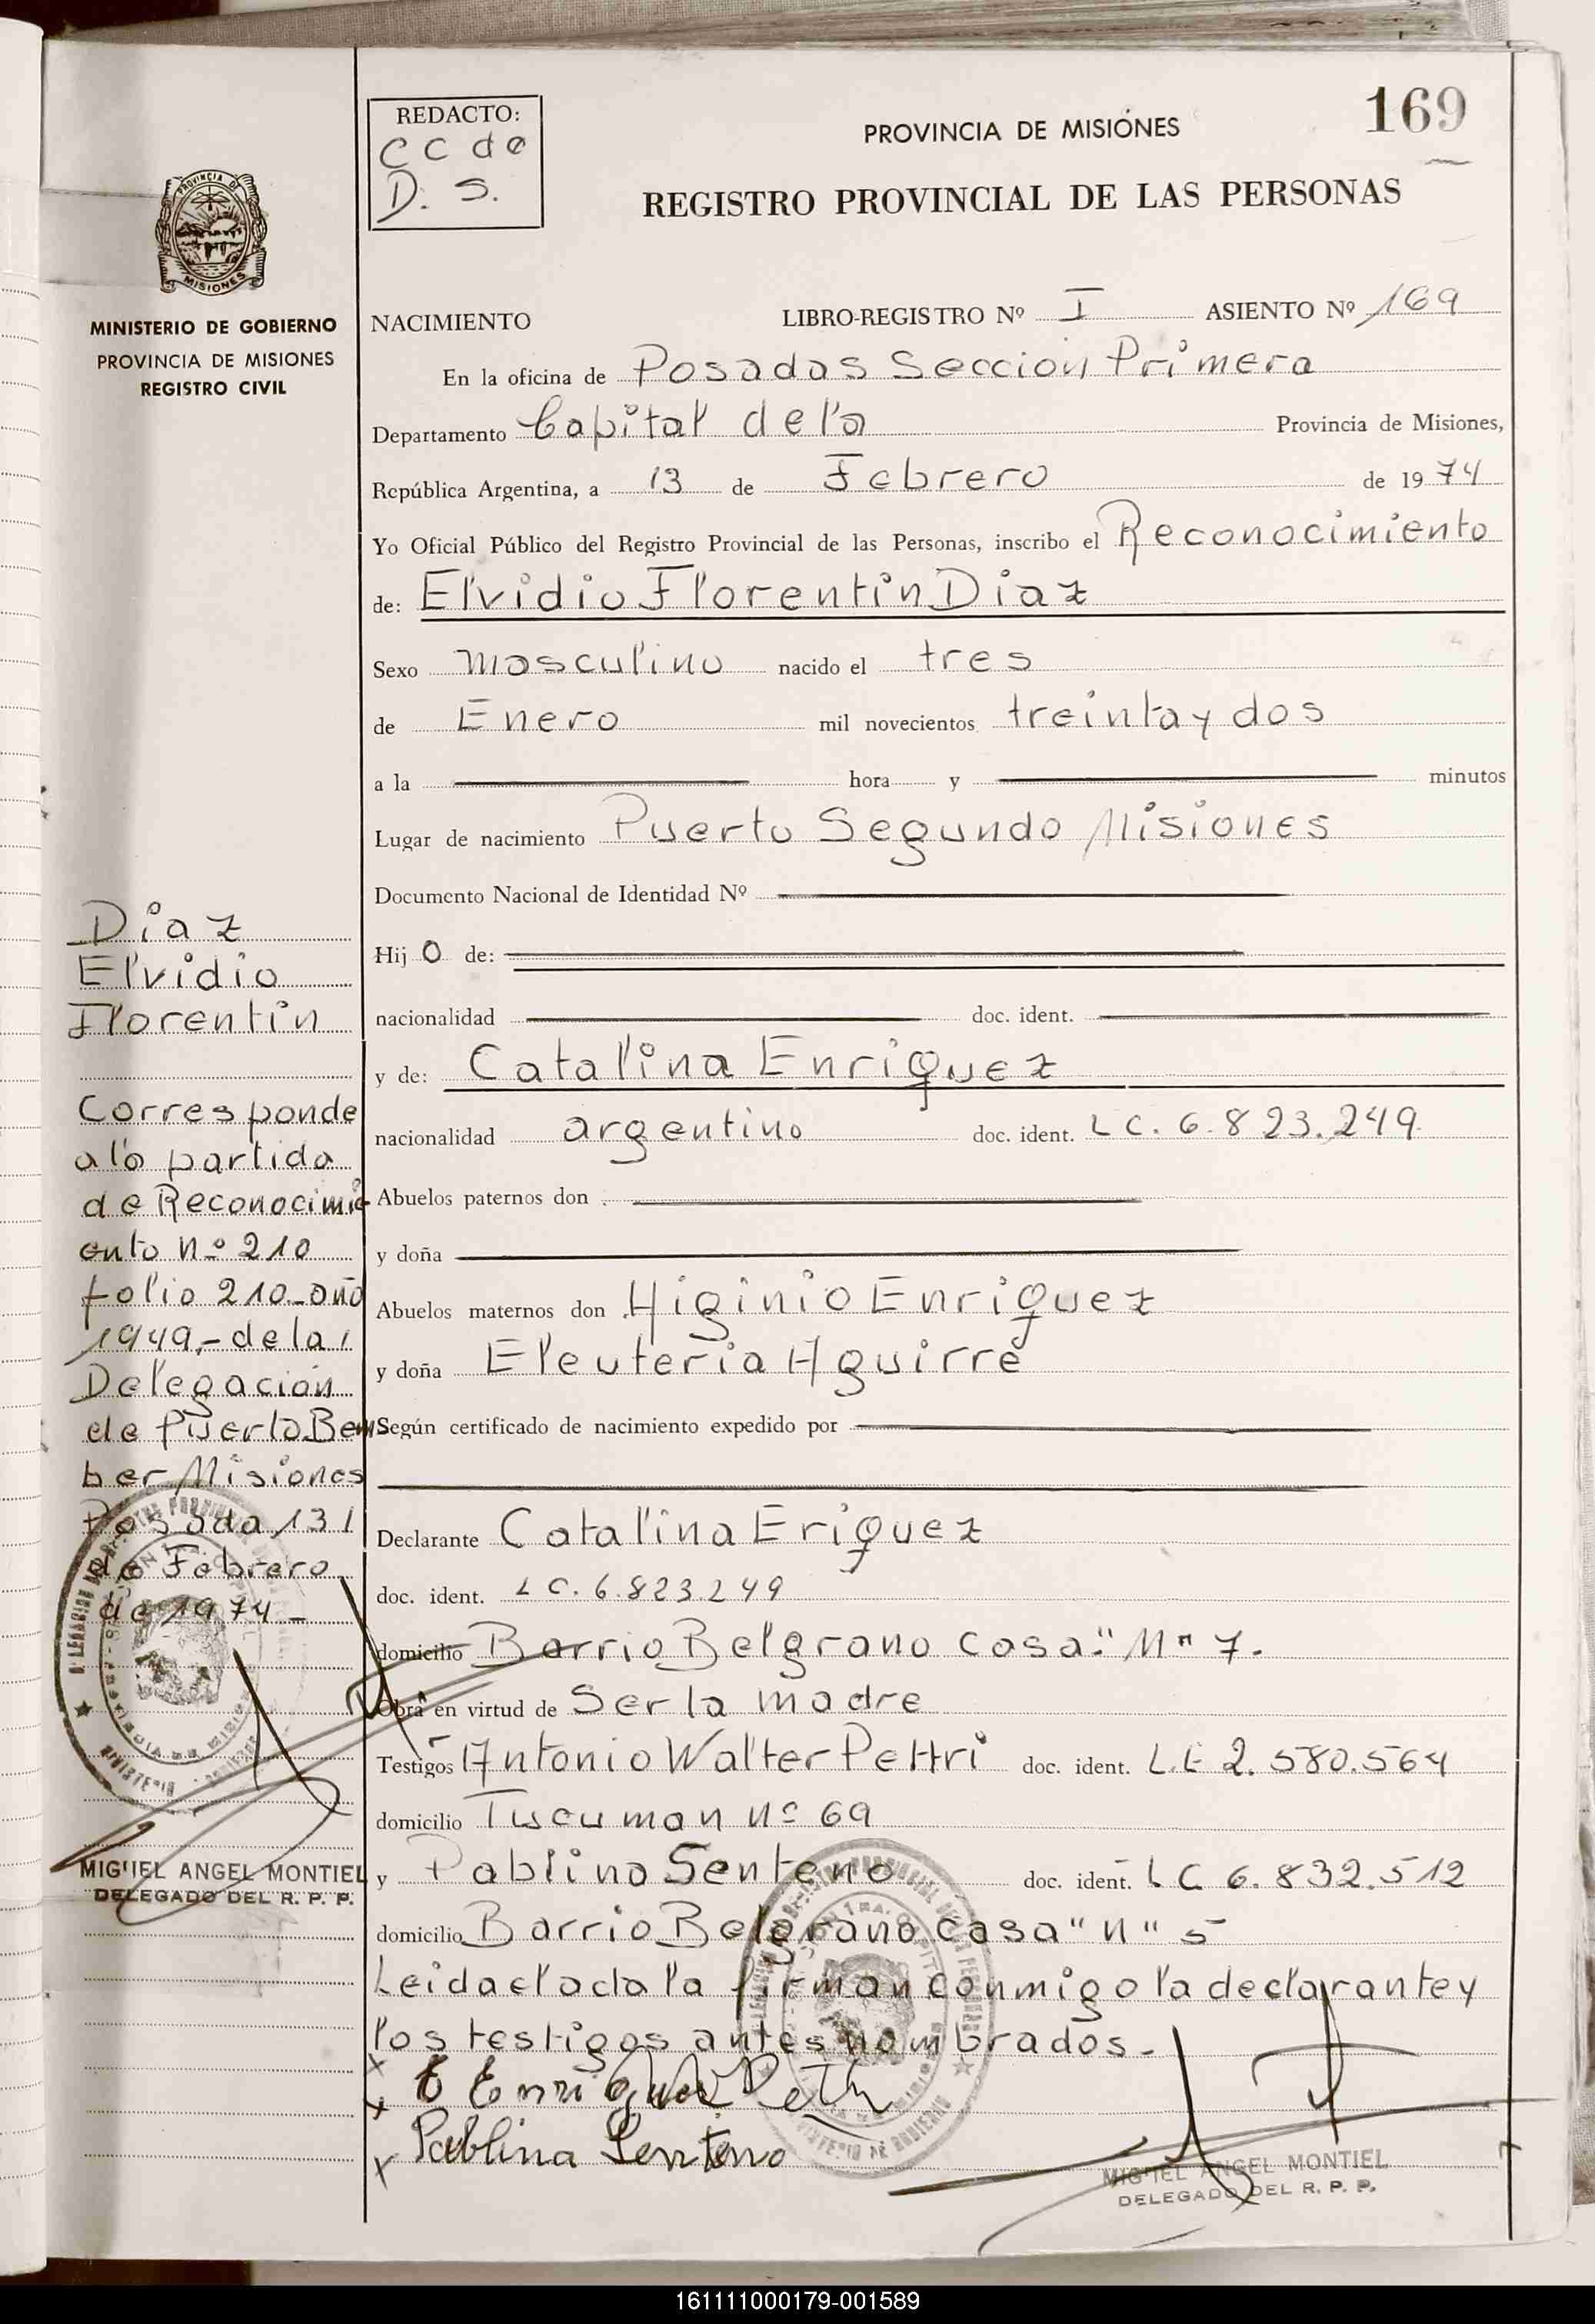 169
REDACTO:
CC de
D. S.
PROVINCIA DE MISIONES
REGISTRO PROVINCIAL DE LAS PERSONAS
PROVINCIA DE
MISIONES
MINISTERIO DE GOBIERNO
PROVINCIA DE MISIONES
REGISTRO CIVIL
NACIMIENTO LIBRO-REGISTRO Nº I ASIENTO Nº 169
En la oficina de Posadas Seccion Primera
Departamento Capital de la Provincia de Misiones,
República Argentina, a 13 de Febrero de 1974
Yo Oficial Público del Registro Provincial de las Personas, inscribo el Reconocimiento
de: Elvidio Florentin Diaz
Sexo masculino nacido el tres
de Enero mil novecientos treinta y dos
a la hora y minutos
Lugar de nacimiento Puerto Segundo Misiones
Documento Nacional de Identidad Nº
Hijo de:
nacionalidad doc. ident.
y de: Catalina Enriquez
nacionalidad argentino doc. ident. LC. 6.823.249
Abuelos paternos don
y doña
Abuelos maternos don Higinio Enriquez
y doña Eleuteria Aguirre
Según certificado de nacimiento expedido por
Declarante Catalina Eriquez
doc. ident. LC. 6.823.249
domicilio Barrio Belgrano casa "M" 7.
Obra en virtud de Ser la madre
Testigos Antonio Walter Pettri doc. ident. L.E 2.580.564
domicilio Tucuman nº 69
y Pablina Senteno doc. ident. LC 6.832.512
domicilio Barrio Belgrano casa "N" 5
Leida el acta la firman conmigo la declarante y
los testigos antes nombrados.-
C Enriquez
Pablina Senteno
MIGUEL ANGEL MONTIEL
DELEGADO DEL R. P. P.
Diaz
Elvidio
Florentin
Corresponde
a la partida
de Reconocimi
ento nº 210
folio 210 año
1949,- de la
Delegacion
de Puerto Bem
ber Misiones
Posada 13
de Febrero
de 1974-
MIGUEL ANGEL MONTIEL
DELEGADO DEL R. P. P.
161111000179-001589